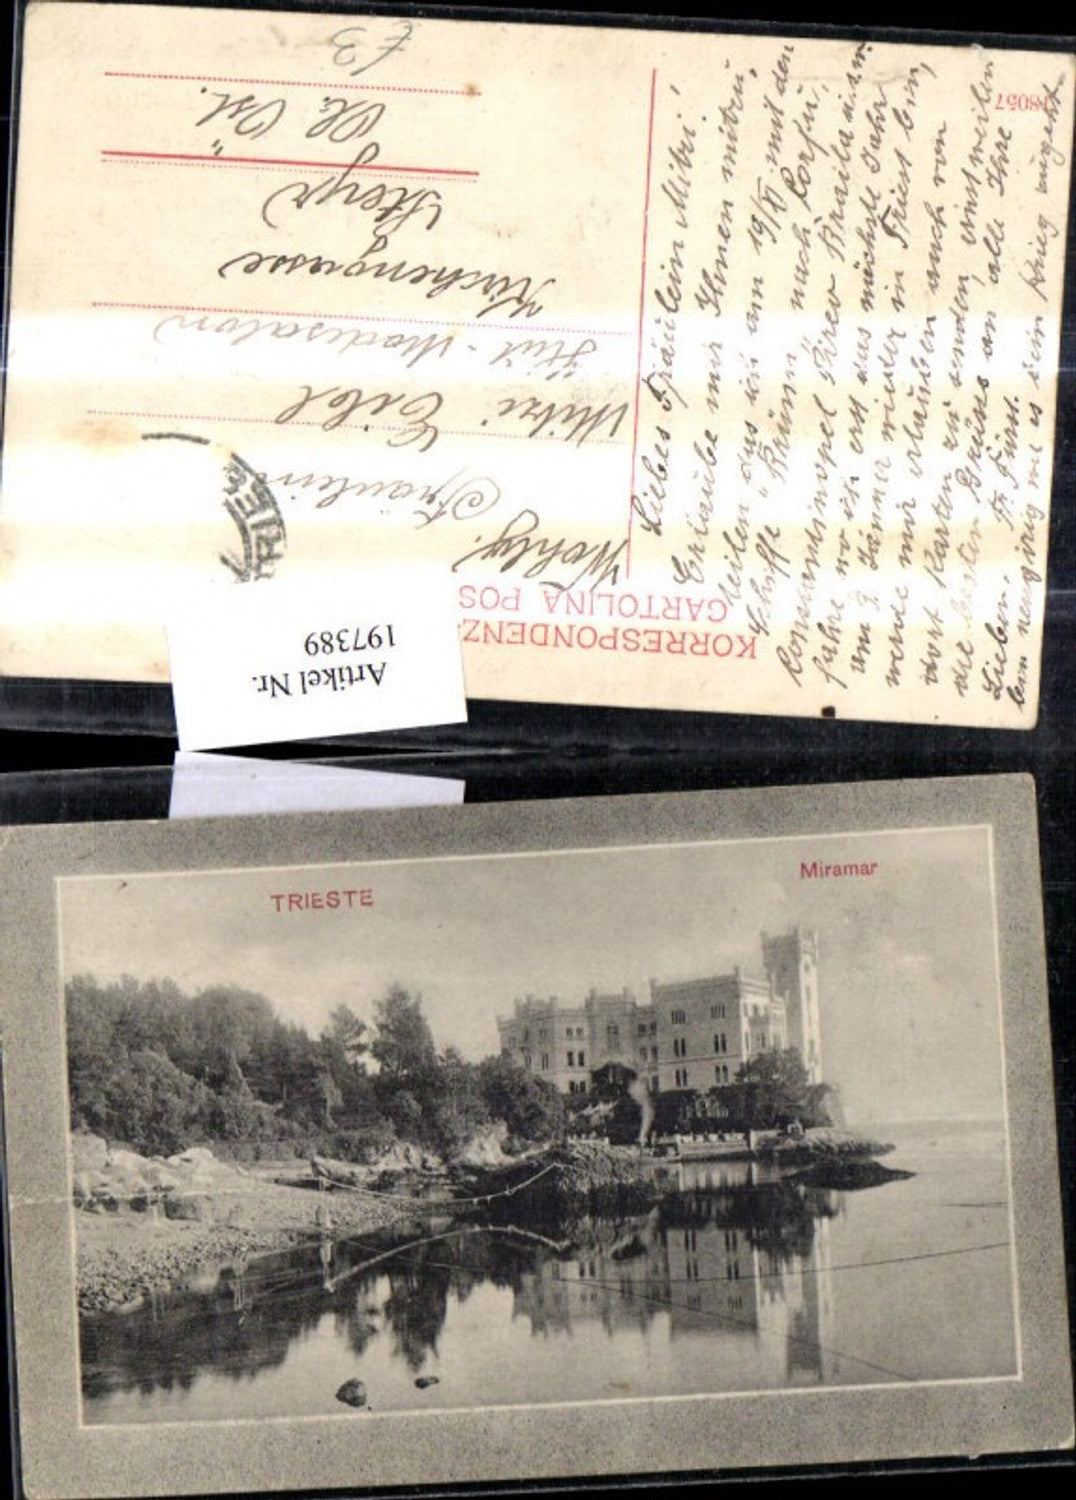 KORRESPONDENZ-
CARTOLINA POS
18057
Liebes Fräulein Mitzi!
Erlaube mir Ihnen mitzu
teilen das ich am 19/XI mit den
Schiffe "Brünn" nach Corfu,
Constantinopel Pireo Braila u.s.w.
fahre wo ich erst das nächste Jahr
am 3 Jänner wieder in Triest bin,
werde mir erlauben auch von
dort Karten zu senden, einstweilen
die besten Grüsse an alle Ihre
Lieben. Fr. Fürst.
bin neugirig wie es beim Krieg zugeht
Wohlg.
Fräulein
Mitzi Eibl
Hut-Modesalon
Kirchengasse
Steyr
Ob. Öst.
£3
TRIES
Artikel Nr.
197389
TRIESTE
Miramar